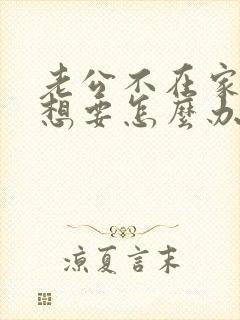 老公不在家
想要怎麼办
涼夏言末